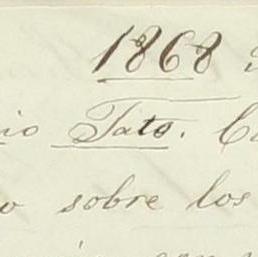 1868
io Tato. C
o sobre los